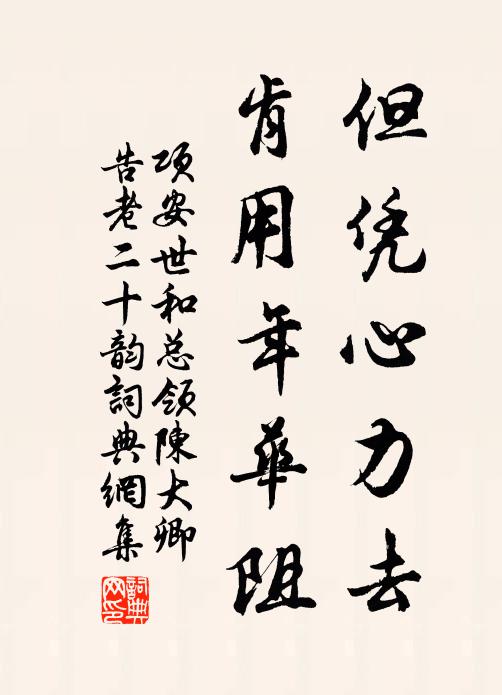 但凭心力去
肯用年華阻
项安世和总领陳大卿
告老二十韵詞典網集
詞典
网印